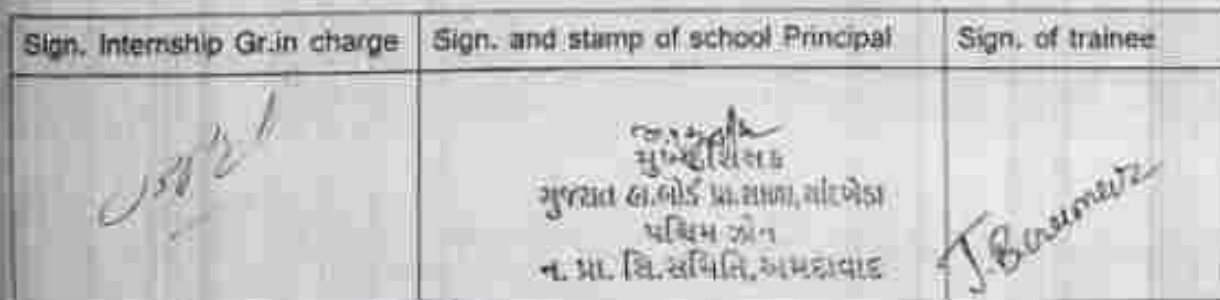 Sign. Internship Gr.in charge
Sign. and stamp of school Principal
Sign. of trainee
મુખ્ય શિક્ષક
ગુજરાત હા.બોર્ડ પ્રા.શાળા, ચાંદખેડા
પશ્ચિમ ઝોન
ન. પ્રા. શિ. સમિતિ, અમદાવાદ